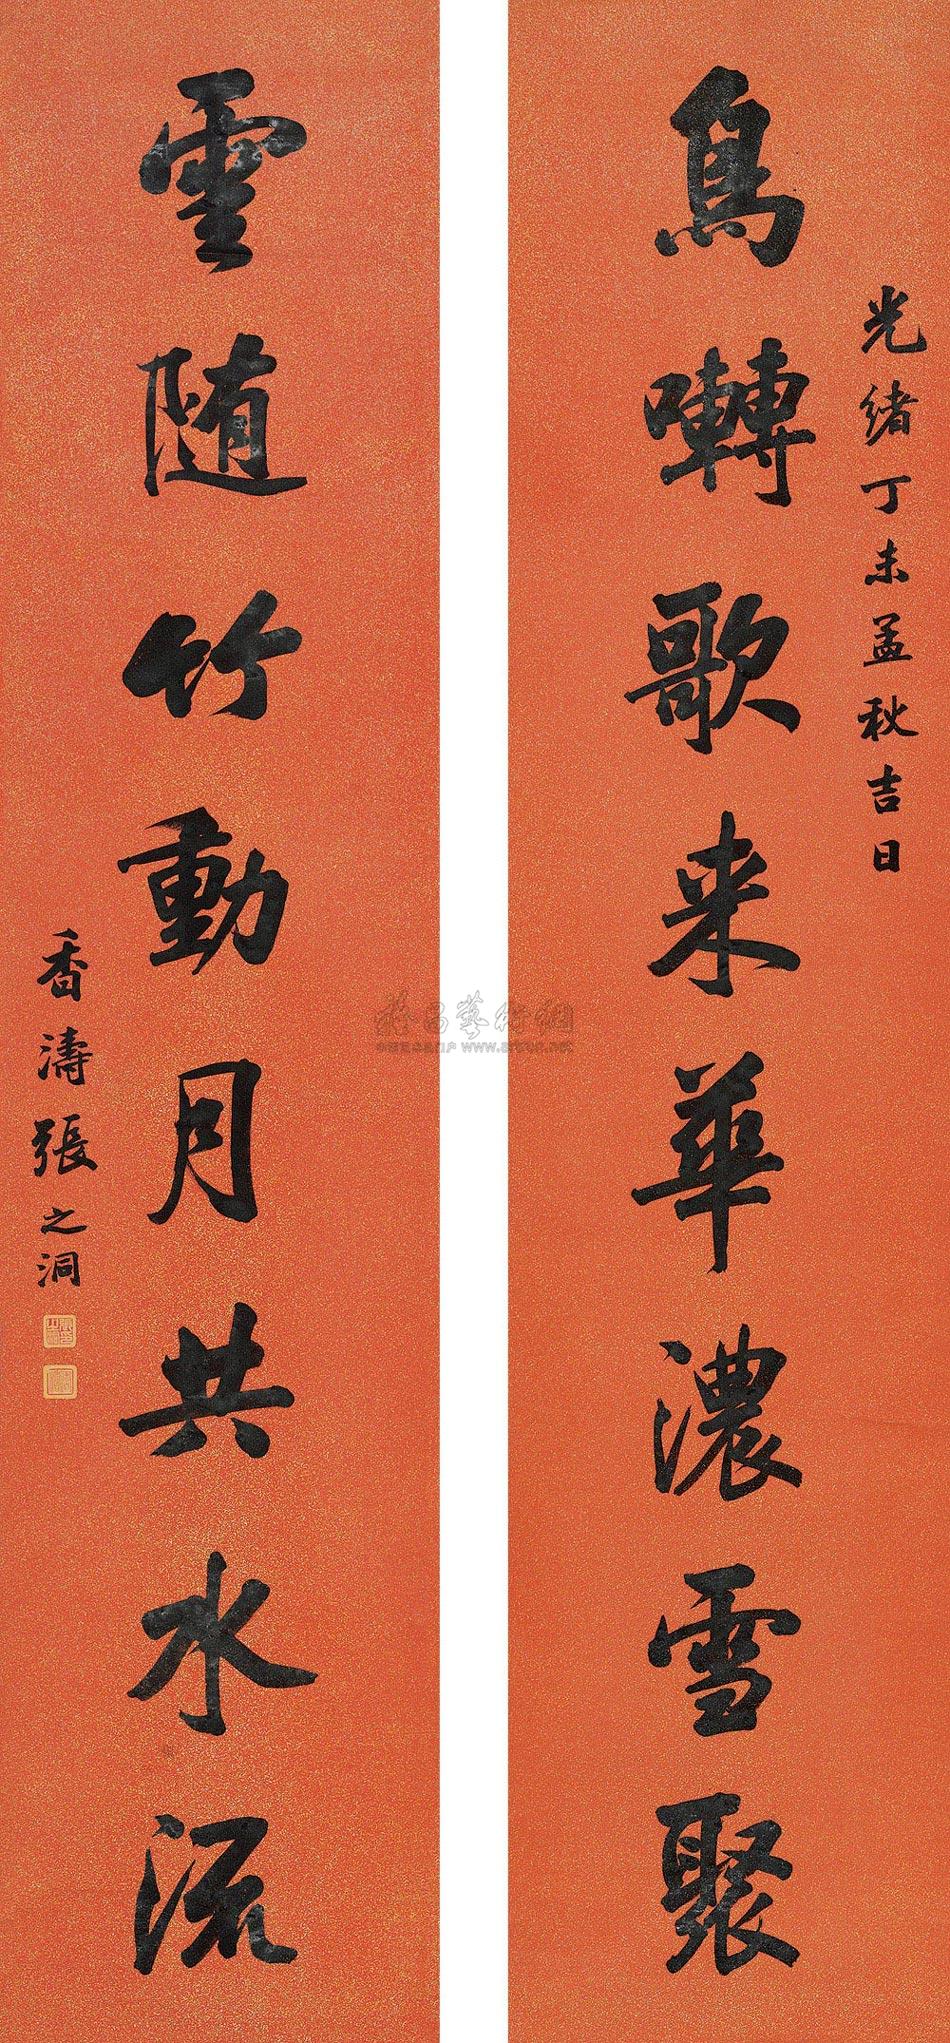 光緒丁未孟秋吉日
鳥囀歌来華濃雪聚
雲随竹動月共水流
香濤張之洞